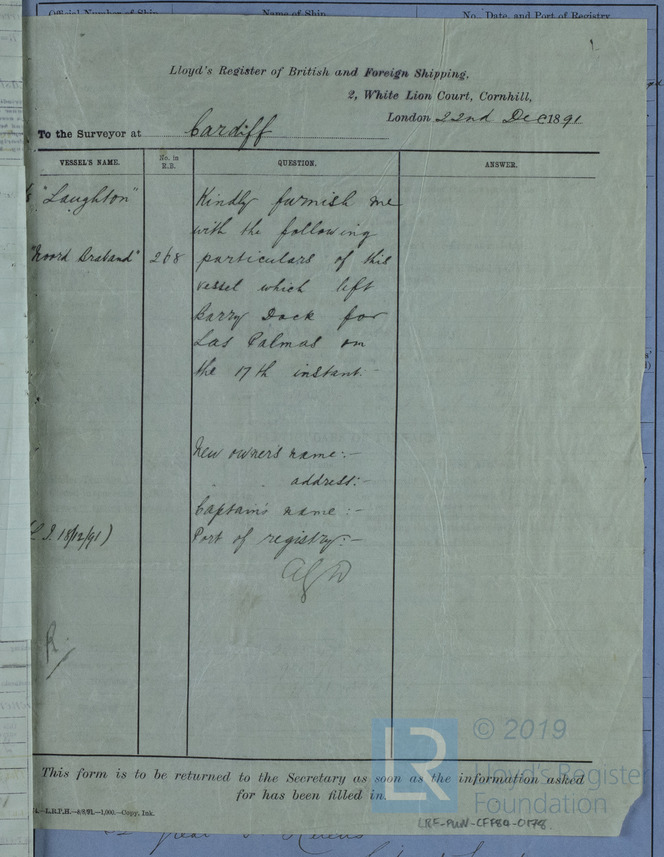 Official Number of Ship Name of Ship No., Date, and Port of Registry
Lloyd's Register of British and Foreign Shipping,
2, White Lion Court, Cornhill,
London 22nd Dec 1891
To the Surveyor at Cardiff
VESSEL'S NAME. No. in R.B. QUESTION. ANSWER.
"Laughton" Kindly furnish me
with the following
"Noord Braband" 268 particulars of this
vessel which left
Barry Dock for
Las Palmas on
the 17th instant.
New owner's name:-
" " address:-
Captain's name:-
18/12/91) Port of registry:-
R
This form is to be returned to the Secretary as soon as the information asked
for has been filled in.
L.R.P.H.—8/8/91.—1,000.—Copy. Ink.
LR
© 2019
Lloyd's Register
Foundation
LRF-PUN-CFF84-0178